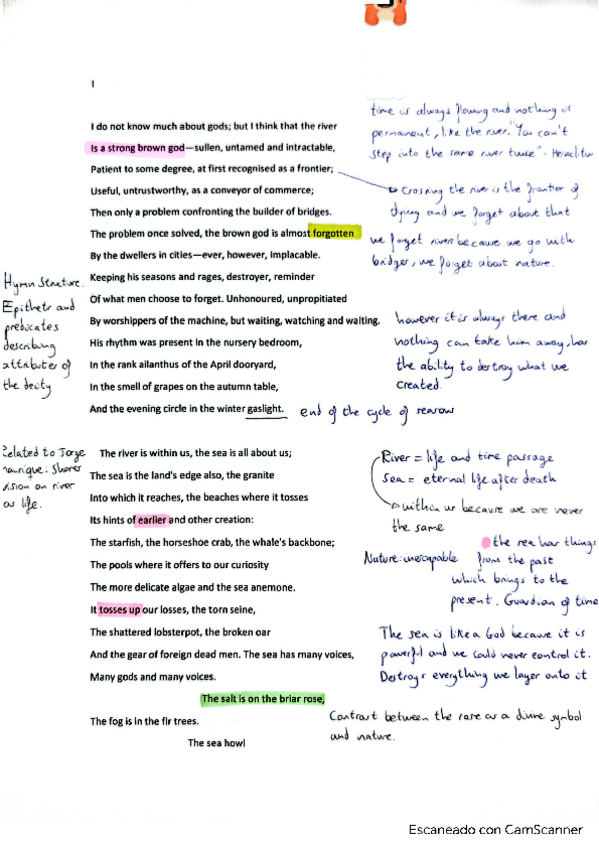 I
I do not know much about gods; but I think that the river
Is a strong brown god—sullen, untamed and intractable,
Patient to some degree, at first recognised as a frontier;
Useful, untrustworthy, as a conveyor of commerce;
Then only a problem confronting the builder of bridges.
The problem once solved, the brown god is almost forgotten
By the dwellers in cities—ever, however, implacable.
Keeping his seasons and rages, destroyer, reminder
Of what men choose to forget. Unhonoured, unpropitiated
By worshippers of the machine, but waiting, watching and waiting.
His rhythm was present in the nursery bedroom,
In the rank ailanthus of the April dooryard,
In the smell of grapes on the autumn table,
And the evening circle in the winter gaslight.
time is always flowing and nothing is
permanent, like the river. "You can't
step into the same river twice" - Heraclitus
Crossing the river is the frontier of
dying and we forget about that
we forget rivers because we go with
bridges, we forget about nature.
Hymn structure.
Epithets and
predicates
describing
attributes of
the deity
however it is always there and
nothing can take him away, has
the ability to destroy what we
created.
end of the cycle of seasons
The river is within us, the sea is all about us;
The sea is the land's edge also, the granite
Into which it reaches, the beaches where it tosses
Its hints of earlier and other creation:
The starfish, the horseshoe crab, the whale's backbone;
The pools where it offers to our curiosity
The more delicate algae and the sea anemone.
It tosses up our losses, the torn seine,
The shattered lobsterpot, the broken oar
And the gear of foreign dead men. The sea has many voices,
Many gods and many voices.
The salt is on the briar rose,
The fog is in the fir trees.
The sea howl
Related to Jorge
Manrique: Shares
vision on river
as life.
River = life and time passage
Sea = eternal life after death
within us because we are never
the same
the sea has things
from the past
which brings to the
present. Guardian of time
Nature: inescapable
The sea is like a God because it is
powerful and we could never control it.
Destroys everything we layer onto it
Contrast between the rose as a divine symbol
and nature.
Escaneado con CamScanner